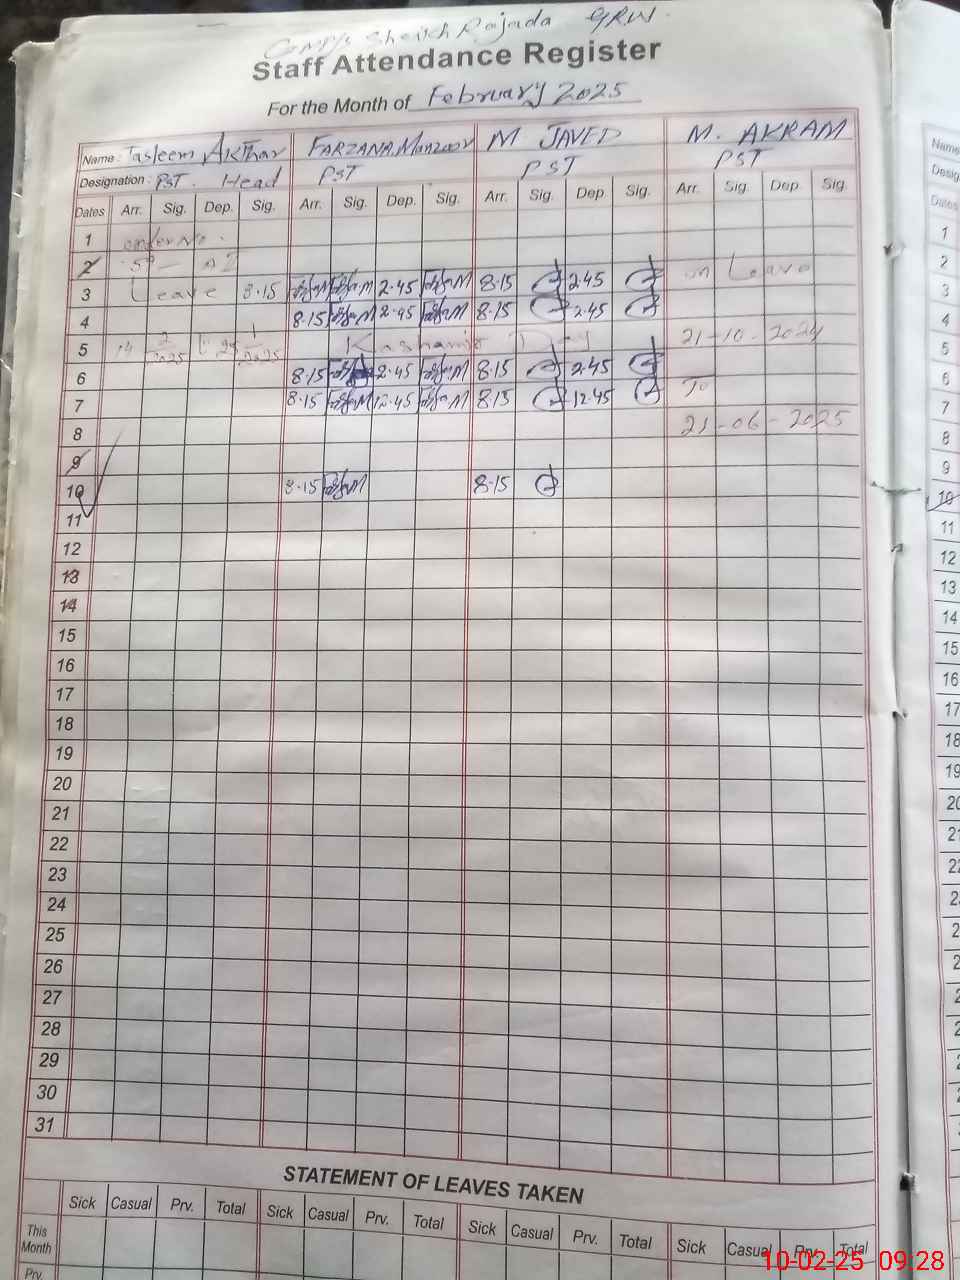 GMPS Sheikh Rajada GRW.
Staff Attendance Register
For the Month of February 2025
Name: Tasleem Akthar FARZANA Manzoor M JAVED M. AKRAM
Designation: PST. Head PST PST PST
Dates Arr. Sig. Dep. Sig. Arr. Sig. Dep. Sig. Arr. Sig. Dep. Sig. Arr. Sig. Dep. Sig.
1 order No.
2
3 Leave 8.15 2.45 8.15 2.45 on Leave
4 8.15 2.45 8.15 2.45
5 14 2 2025 25 1 2025 Kashmir Day 21-10-2024
6 8.15 2.45 8.15 2.45
7 8.15 12.45 8.15 12.45 To
8 21-06-2025
9
10 8.15 8.15
11
12
13
14
15
16
17
18
19
20
21
22
23
24
25
26
27
28
29
30
31
STATEMENT OF LEAVES TAKEN
Sick Casual Prv. Total Sick Casual Prv. Total Sick Casual Prv. Total Sick Casual Prv. Total
This Month
Prv.
Name
Desig
Dates
1
2
3
4
5
6
7
8
9
10
11
12
13
14
15
16
17
18
19
20
21
22
10-02-25 09:28